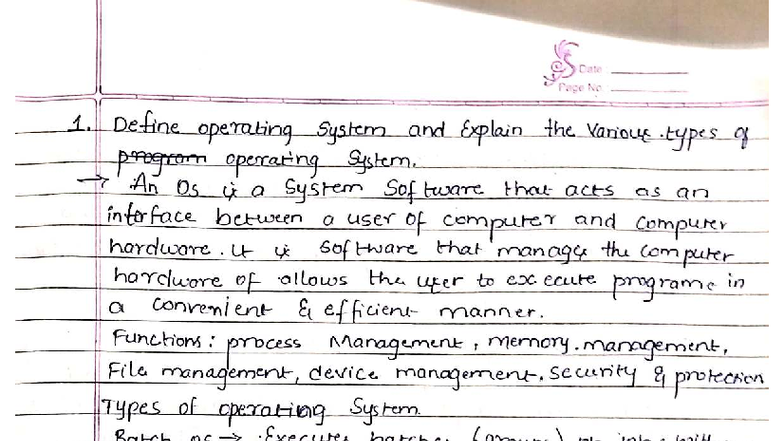 Date
Page No
1. Define operating System and Explain the Various types of
program operating System.
→ An Os is a System Software that acts as an
interface between a user of computer and computer
hardware. It is software that manages the computer
hardware of allows the user to execute programs in
a convenient & efficient manner.
Functions: process Management, memory management,
File management, device management, security & protection
Types of operating System.
Batch os → Executes batches (groups)